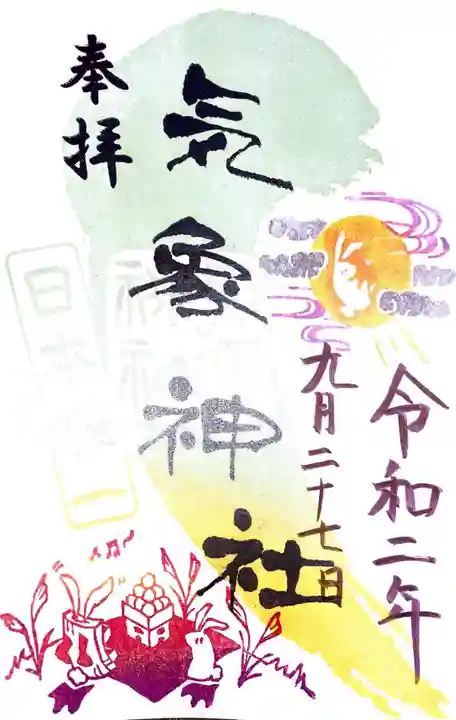 奉拝
気象神社
令和二年
九月二十七日
日本唯一